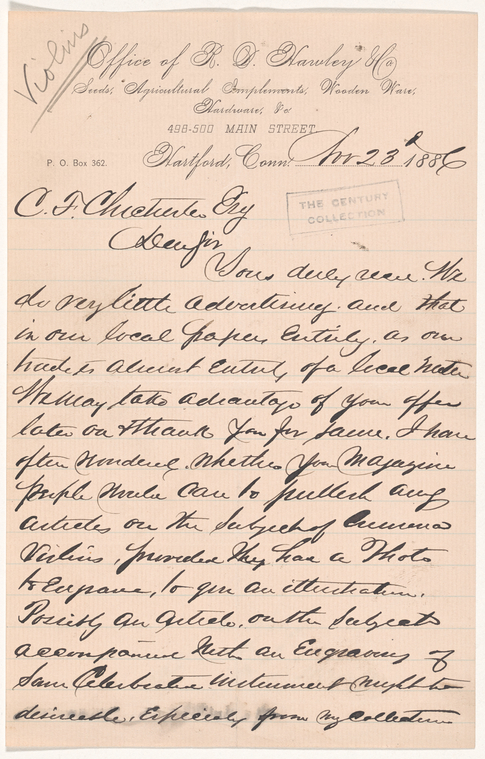 Violins
Office of R. D. Hawley & Co
Seeds, Agricultural Implements, Wooden Ware,
Hardware, &c
498-500 MAIN STREET
P. O. Box 362.
Hartford, Conn. Nov 23d 1886
THE CENTURY
COLLECTION
C. F. Chichester Esq
Dear Sir
Yours duly recd. We
do very little advertising. and that
in our local papers Entirely. as our
trade is almost Entirely of a local
We may take advantage of your offer
later on & thank you for same. I have
often wondered. whether you Magazine
people would care to publish any
articles on the Subject of Cremona
Violins, provided they had a Photo
to Engrave, to give an illustration.
Possibly an article. on the Subject
accompanied With an Engraving of
Some Celebrated instrument might be
desireable, Especially from my Collection